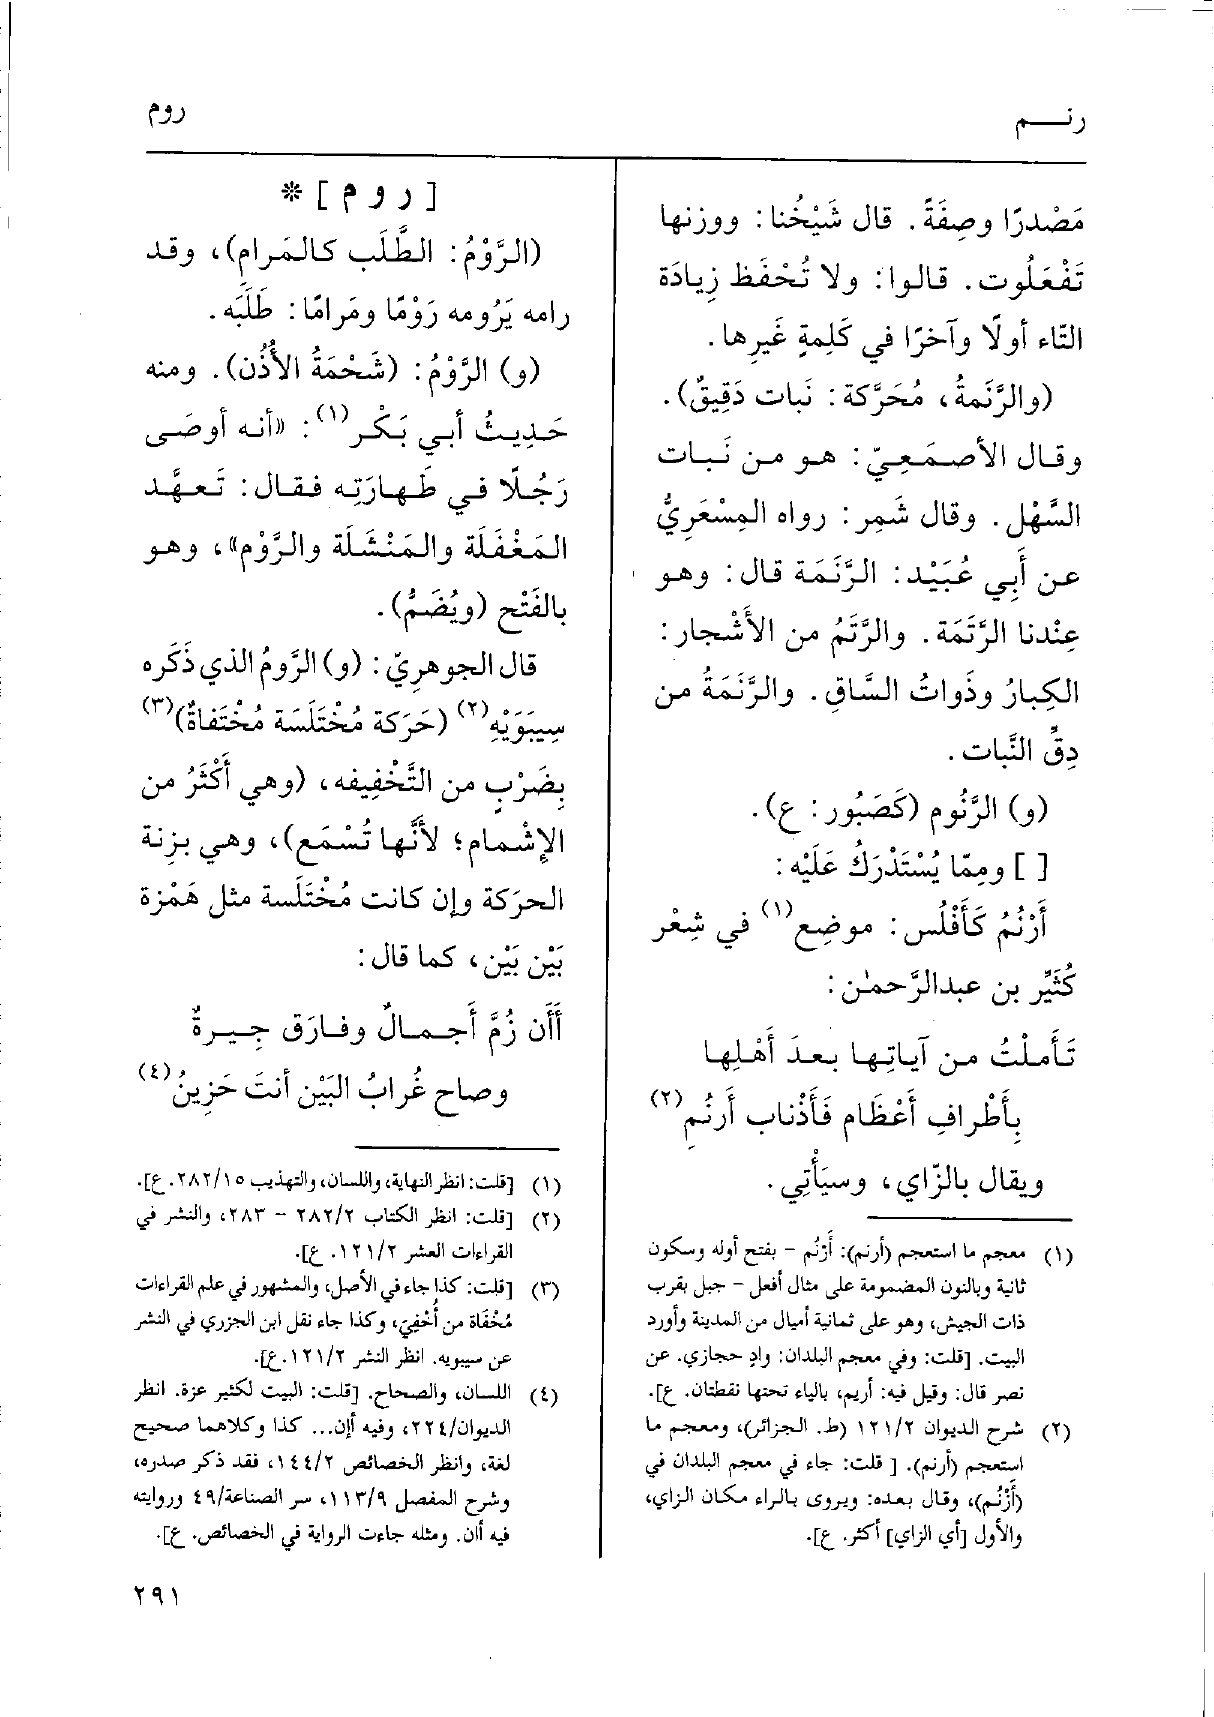 رنـــم
روم
مَصْدرًا وصِفَةً. قال شَيْخُنا: ووزنها
تَفْعَلُوت. قالوا: ولا تُحْفَظ زِيادَة
التّاء أولًا وآخرًا في كَلِمةٍ غَيرِها.
(والرَّنَمةُ، مُحَرَّكة: نَبات دَقِيقٌ).
وقال الأصمَعِيّ: هو من نَبات
السَّهْل. وقال شَمِر: رواه المِسْعَرِيُّ
عن أَبِي عُبَيْد: الرَّنَمَة قال: وهو
عِنْدنا الرَّتَمَة. والرَّتَمُ من الأَشْجار:
الكِبارُ وذَواتُ السَّاقِ. والرَّنَمَةُ من
دِقِّ النَّبات.
(و) الرَّنُوم (كَصَبُور: ع).
[ ] ومِمّا يُسْتَدْرَكُ عَلَيْه:
أَرْنُمُ كَأَفْلُس: موضِع(١) في شِعْر
كُثَيِّر بن عبدالرَّحمٰن:
تَأَملْتُ من آياتِها بعدَ أَهْلِها
بِأَطْرافِ أَعْظَام فَأَذْناب أَرنُمِ(٢)
ويقال بالزّاي، وسيَأْتِي.
(١) معجم ما استعجم (أرنم): أَرْنُم - بفتح أوله وسكون
ثانية وبالنون المضمومة على مثال أفعل - جبل بقرب
ذات الجيش، وهو على ثمانية أميال من المدينة وأورد
البيت. [قلت: وفي معجم البلدان: وادٍ حجازي. عن
نصر قال: وقيل فيه: أريم، بالياء تحتها نقطتان. ع].
(٢) شرح الديوان ١٢١/٢ (ط. الجزائر)، ومعجم ما
استعجم (أرنم). [ قلت: جاء في معجم البلدان في
(أَزْنُم)، وقال بعده: ويروى بالراء مكان الزاي،
والأول [أي الزاي] أكثر. ع].
[ ر و م ] *
(الرَّوْمُ: الطَّلَب كالمَرام)، وقد
رامه يَرُومه رَوْمًا ومَرامًا: طَلَبَه.
(و) الرَّوْمُ: (شَحْمَةُ الأُذُن). ومنه
حَدِيثُ أبي بَكْر(١): «أنه أوصَى
رَجُلًا في طَهارَتِه فقال: تَعهَّد
المَغْفَلَة والمَنْشَلَة والرَّوْم»، وهو
بالفَتْح (ويُضَمُّ).
قال الجوهريّ: (و) الرَّومُ الذي ذَكَره
سِيبَوَيْهِ(٢) (حَرَكة مُخْتَلَسَة مُخْتَفاةٌ)(٣)
بِضَرْبٍ من التَّخْفِيفه، (وهي أَكْثَرُ من
الإِشْمام؛ لأَنَّها تُسْمَع)، وهي بزنة
الحرَكة وإن كانت مُخْتَلَسة مثل هَمْزة
بَيْن بَيْن، كما قال:
أَأَن زُمَّ أَجمالٌ وفارَق جِيرةٌ
وصاح غُرابُ البَيْن أنتَ حَزِينُ(٤)
(١) [قلت: انظر النهاية، واللسان، والتهذيب ٢٨٢/١٥. ع].
(٢) [قلت: انظر الكتاب ٢٨٢/٢ - ٢٨٣، والنشر في
القراءات العشر ١٢١/٢. ع].
(٣) [قلت: كذا جاء في الأصل، والمشهور في علم القراءات
مُخْفَاة من أُخْفِيَ، وكذا جاء نقل ابن الجزري في النشر
عن سيبويه. انظر النشر ١٢١/٢.ع].
(٤) اللسان، والصحاح. [قلت: البيت لكثير عزة. انظر
الديوان/٢٢٤، وفيه أإن... كذا وكلاهما صحيح
لغة، وانظر الخصائص ١٤٤/٢، فقد ذكر صدره،
وشرح المفصل ١١٣/٩، سر الصناعة/٤٩ وروايته
فيه أان. ومثله جاءت الرواية في الخصائص. ع].
٢٩١